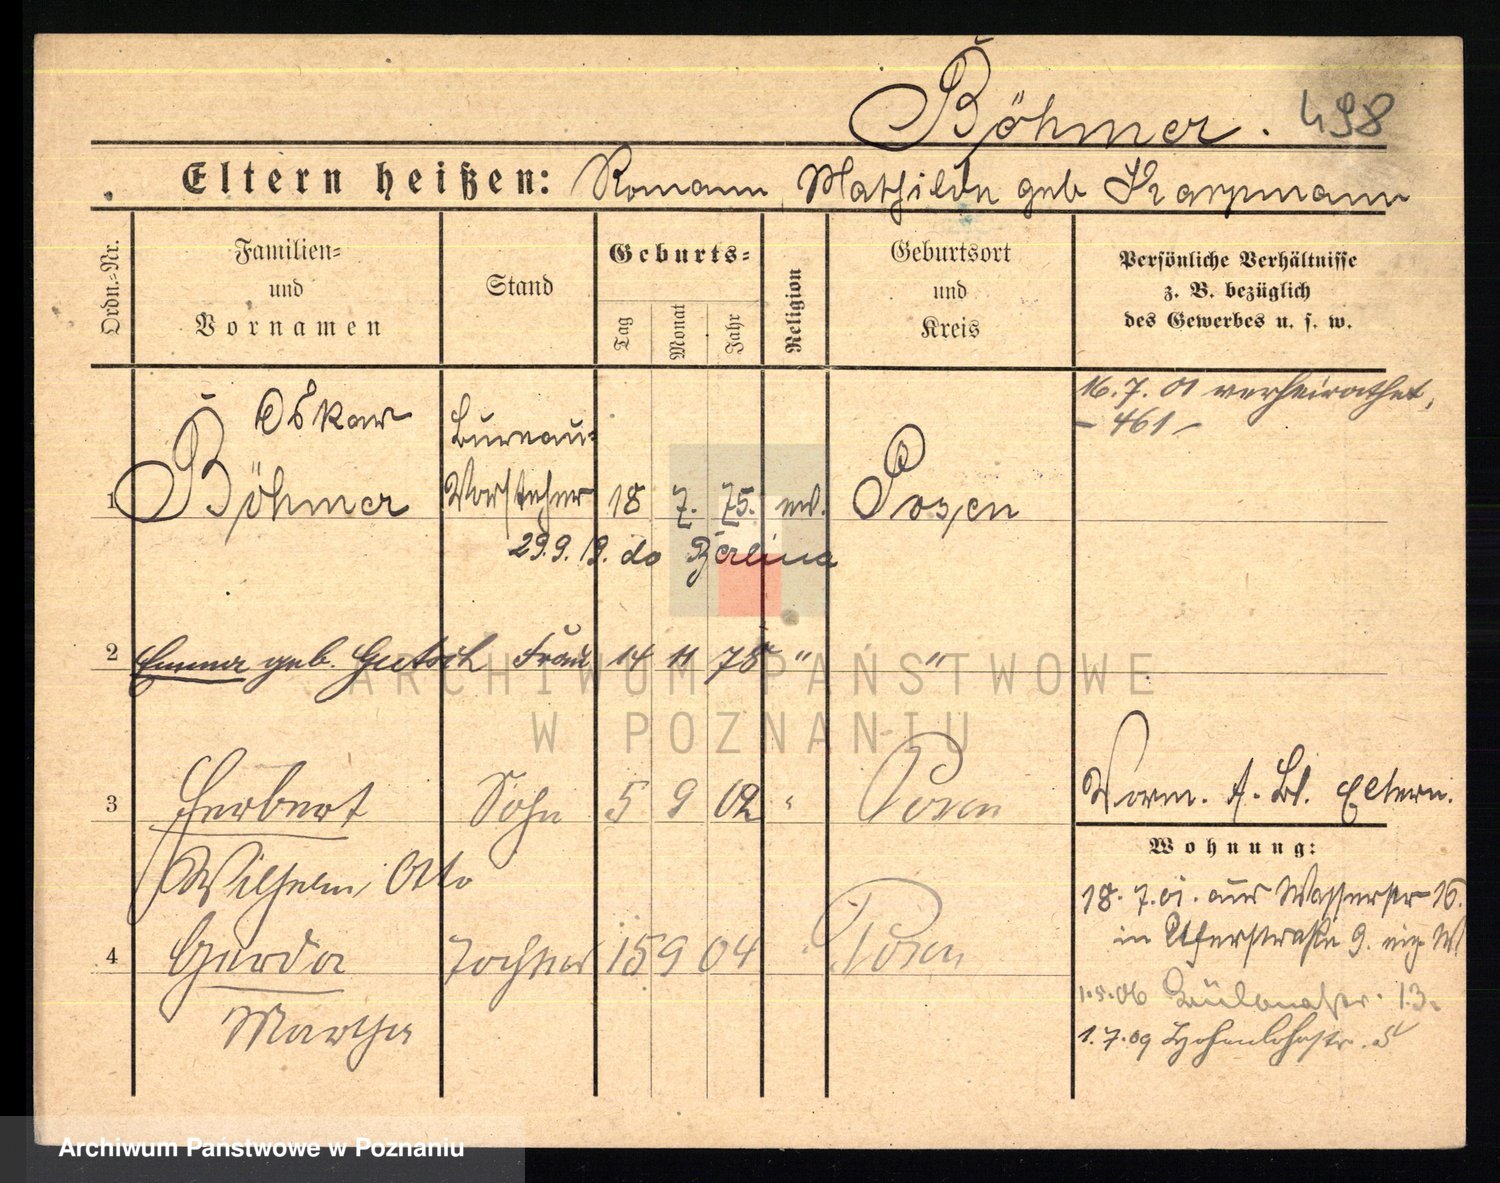 Böhmer. 498
Eltern heißen: Romann, Mathilde geb Karpmann
Ordn.-Nr.
Familien-
und
Vornamen
Stand
Geburts-
Tag
Monat
Jahr
Religion
Geburtsort
und
Kreis
Persönliche Verhältnisse
z. B. bezüglich
des Gewerbes u. s. w.
16.7.01 verheirathet,
- 461 -
Oskar Bureau-
1 Böhmer Vorsteher 18 7. 75. ev. Posen
29.9.19. do Berlina
2 Emma geb. Gutsch Frau 14 11 78 " "
3 Herbert Sohn 5 9 02 " Posen
Wilhelm, Otto
4 Gerda Tochter 15 9 04 Posen
Martha
Vorm. A. Bl. Eltern.
Wohnung:
18.7.01. aus Wasserstr 16.
in Uferstraße 9. eig W.
1.5.06 13.
1.7.09 Hohenlohestr. 5
ARCHIWUM PAŃSTWOWE
W POZNANIU
Archiwum Państwowe w Poznaniu